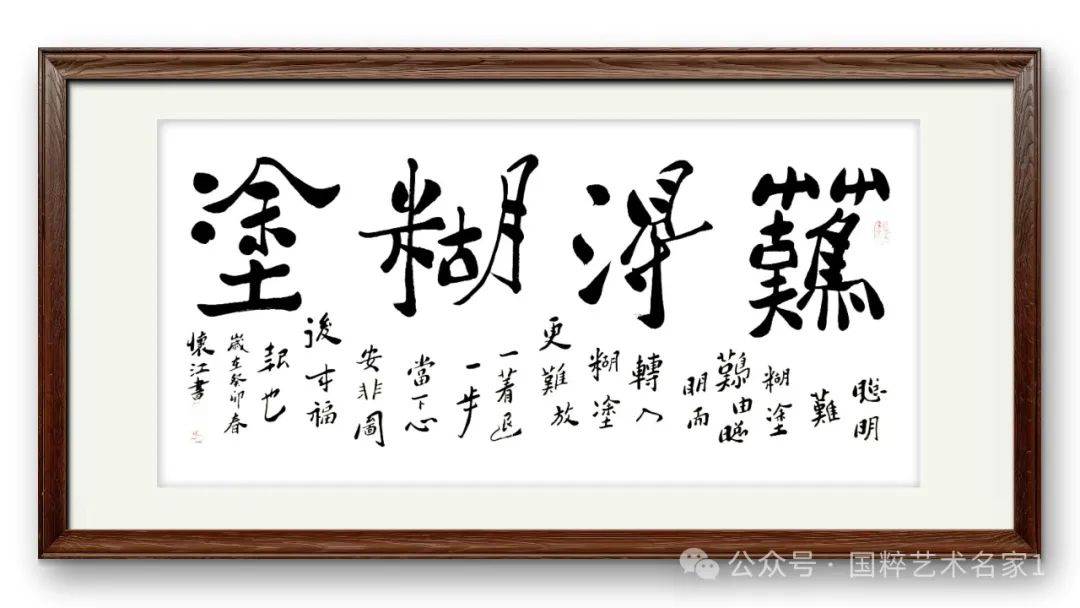 難得糊塗
聰明
難
糊塗
難由聰
明而
轉入
糊塗
更難放
一著退
一步
當下心
安非圖
後來福
報也
歲在癸卯春
懷江書
公众号 · 国粹艺术名家1